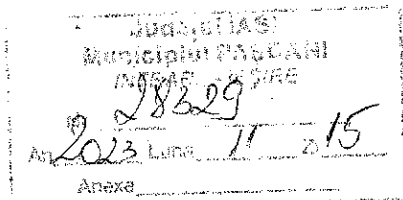 Județul IAȘI
Municipiul PAȘCANI
INTRARE - IEȘIRE
28329
An 2023 Luna 11 Zi 15
Anexa